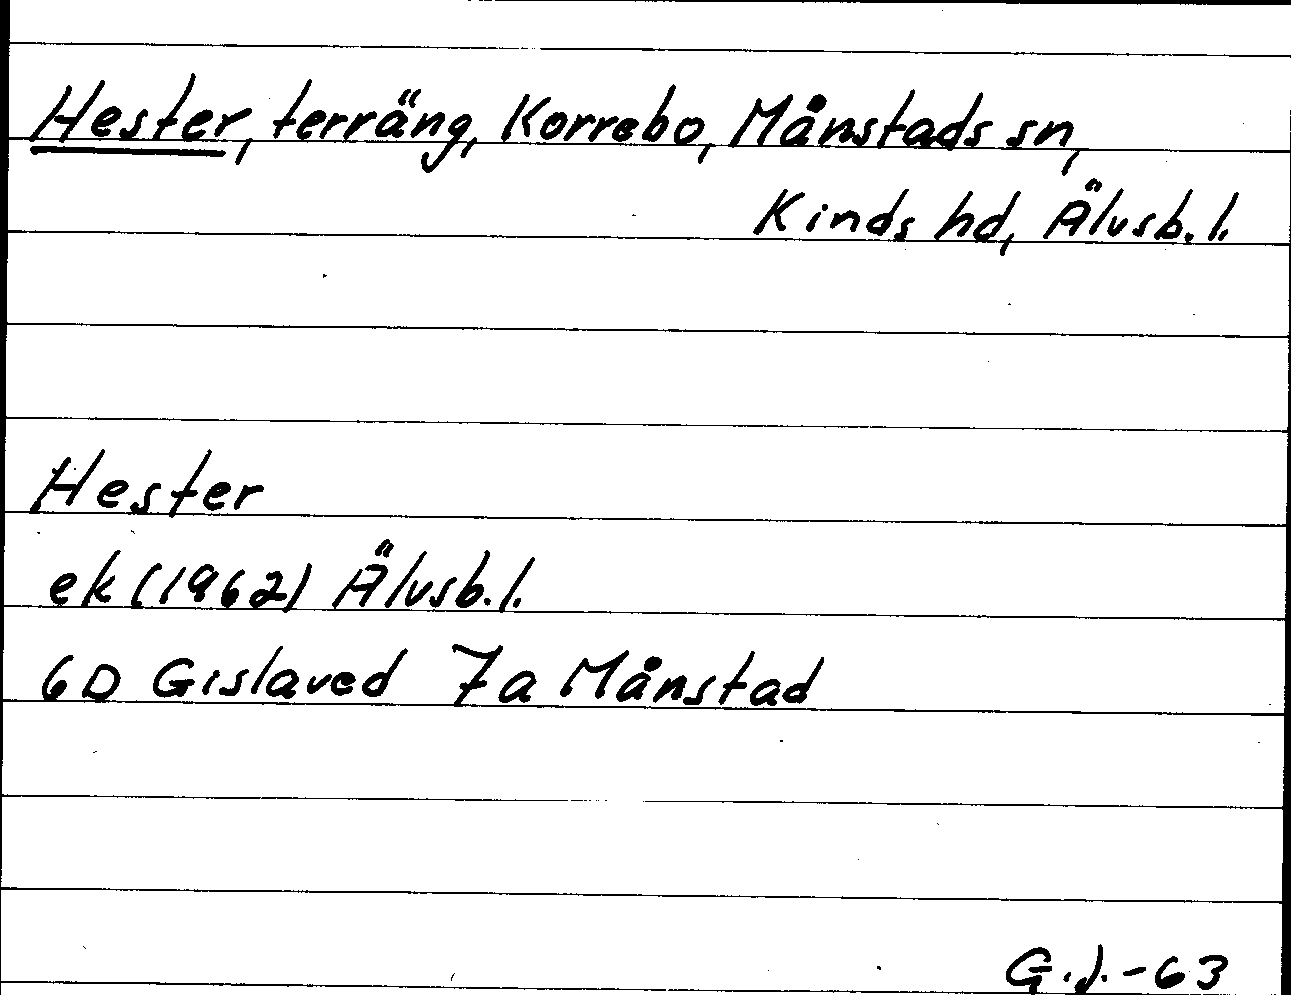 Hester, terräng, Korrebo, Månstads sn,
Kinds hd, Älvsb. l.
Hester
ek (1962) Älvsb. l.
6D Gislaved 7a Månstad
G.J.-63